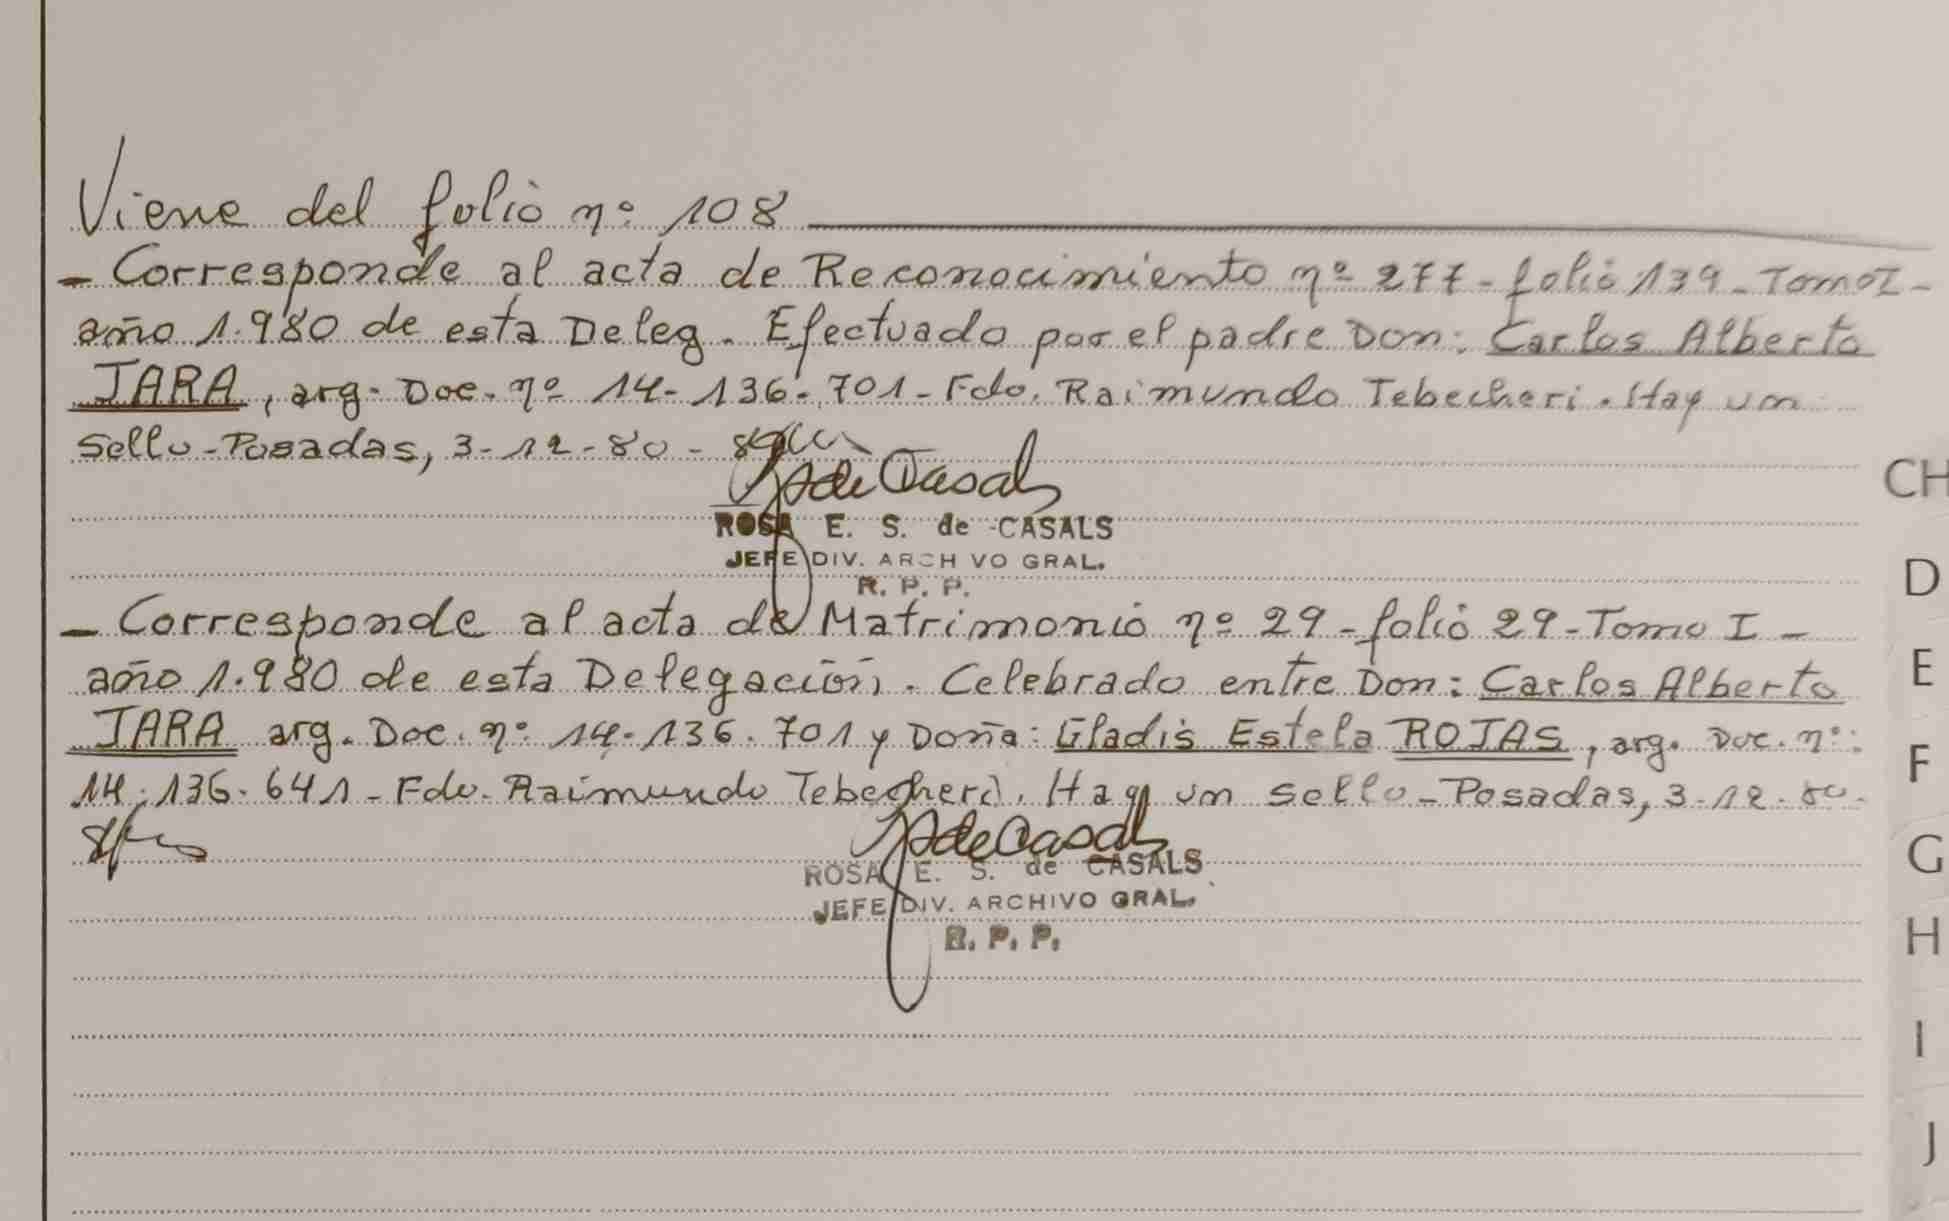 Viene del folio nº 108
- Corresponde al acta de Reconocimiento nº 277 - folio 139 - Tomo I -
año 1.980 de esta Deleg. Efectuado por el padre Don: Carlos Alberto
JARA, arg. Doc. nº 14.136.701 - Fdo. Raimundo Tebecheri. Hay un
Sello - Posadas, 3-12-80 -
de Casals
ROSA E. S. de CASALS
JEFE DIV. ARCH VO GRAL.
R. P. P.
- Corresponde al acta de Matrimonio nº 29 - folio 29 - Tomo I -
año 1.980 de esta Delegación. Celebrado entre Don: Carlos Alberto
JARA arg. Doc. nº 14.136.701 y Doña: Gladis Estela ROJAS, arg. Doc. nº:
14.136.641 - Fdo. Raimundo Tebecheri. Hay un sello - Posadas, 3-12-80.
de Casals
ROSA E. S. de CASALS
JEFE DIV. ARCHIVO GRAL.
R. P. P.
CH
D
E
F
G
H
I
J